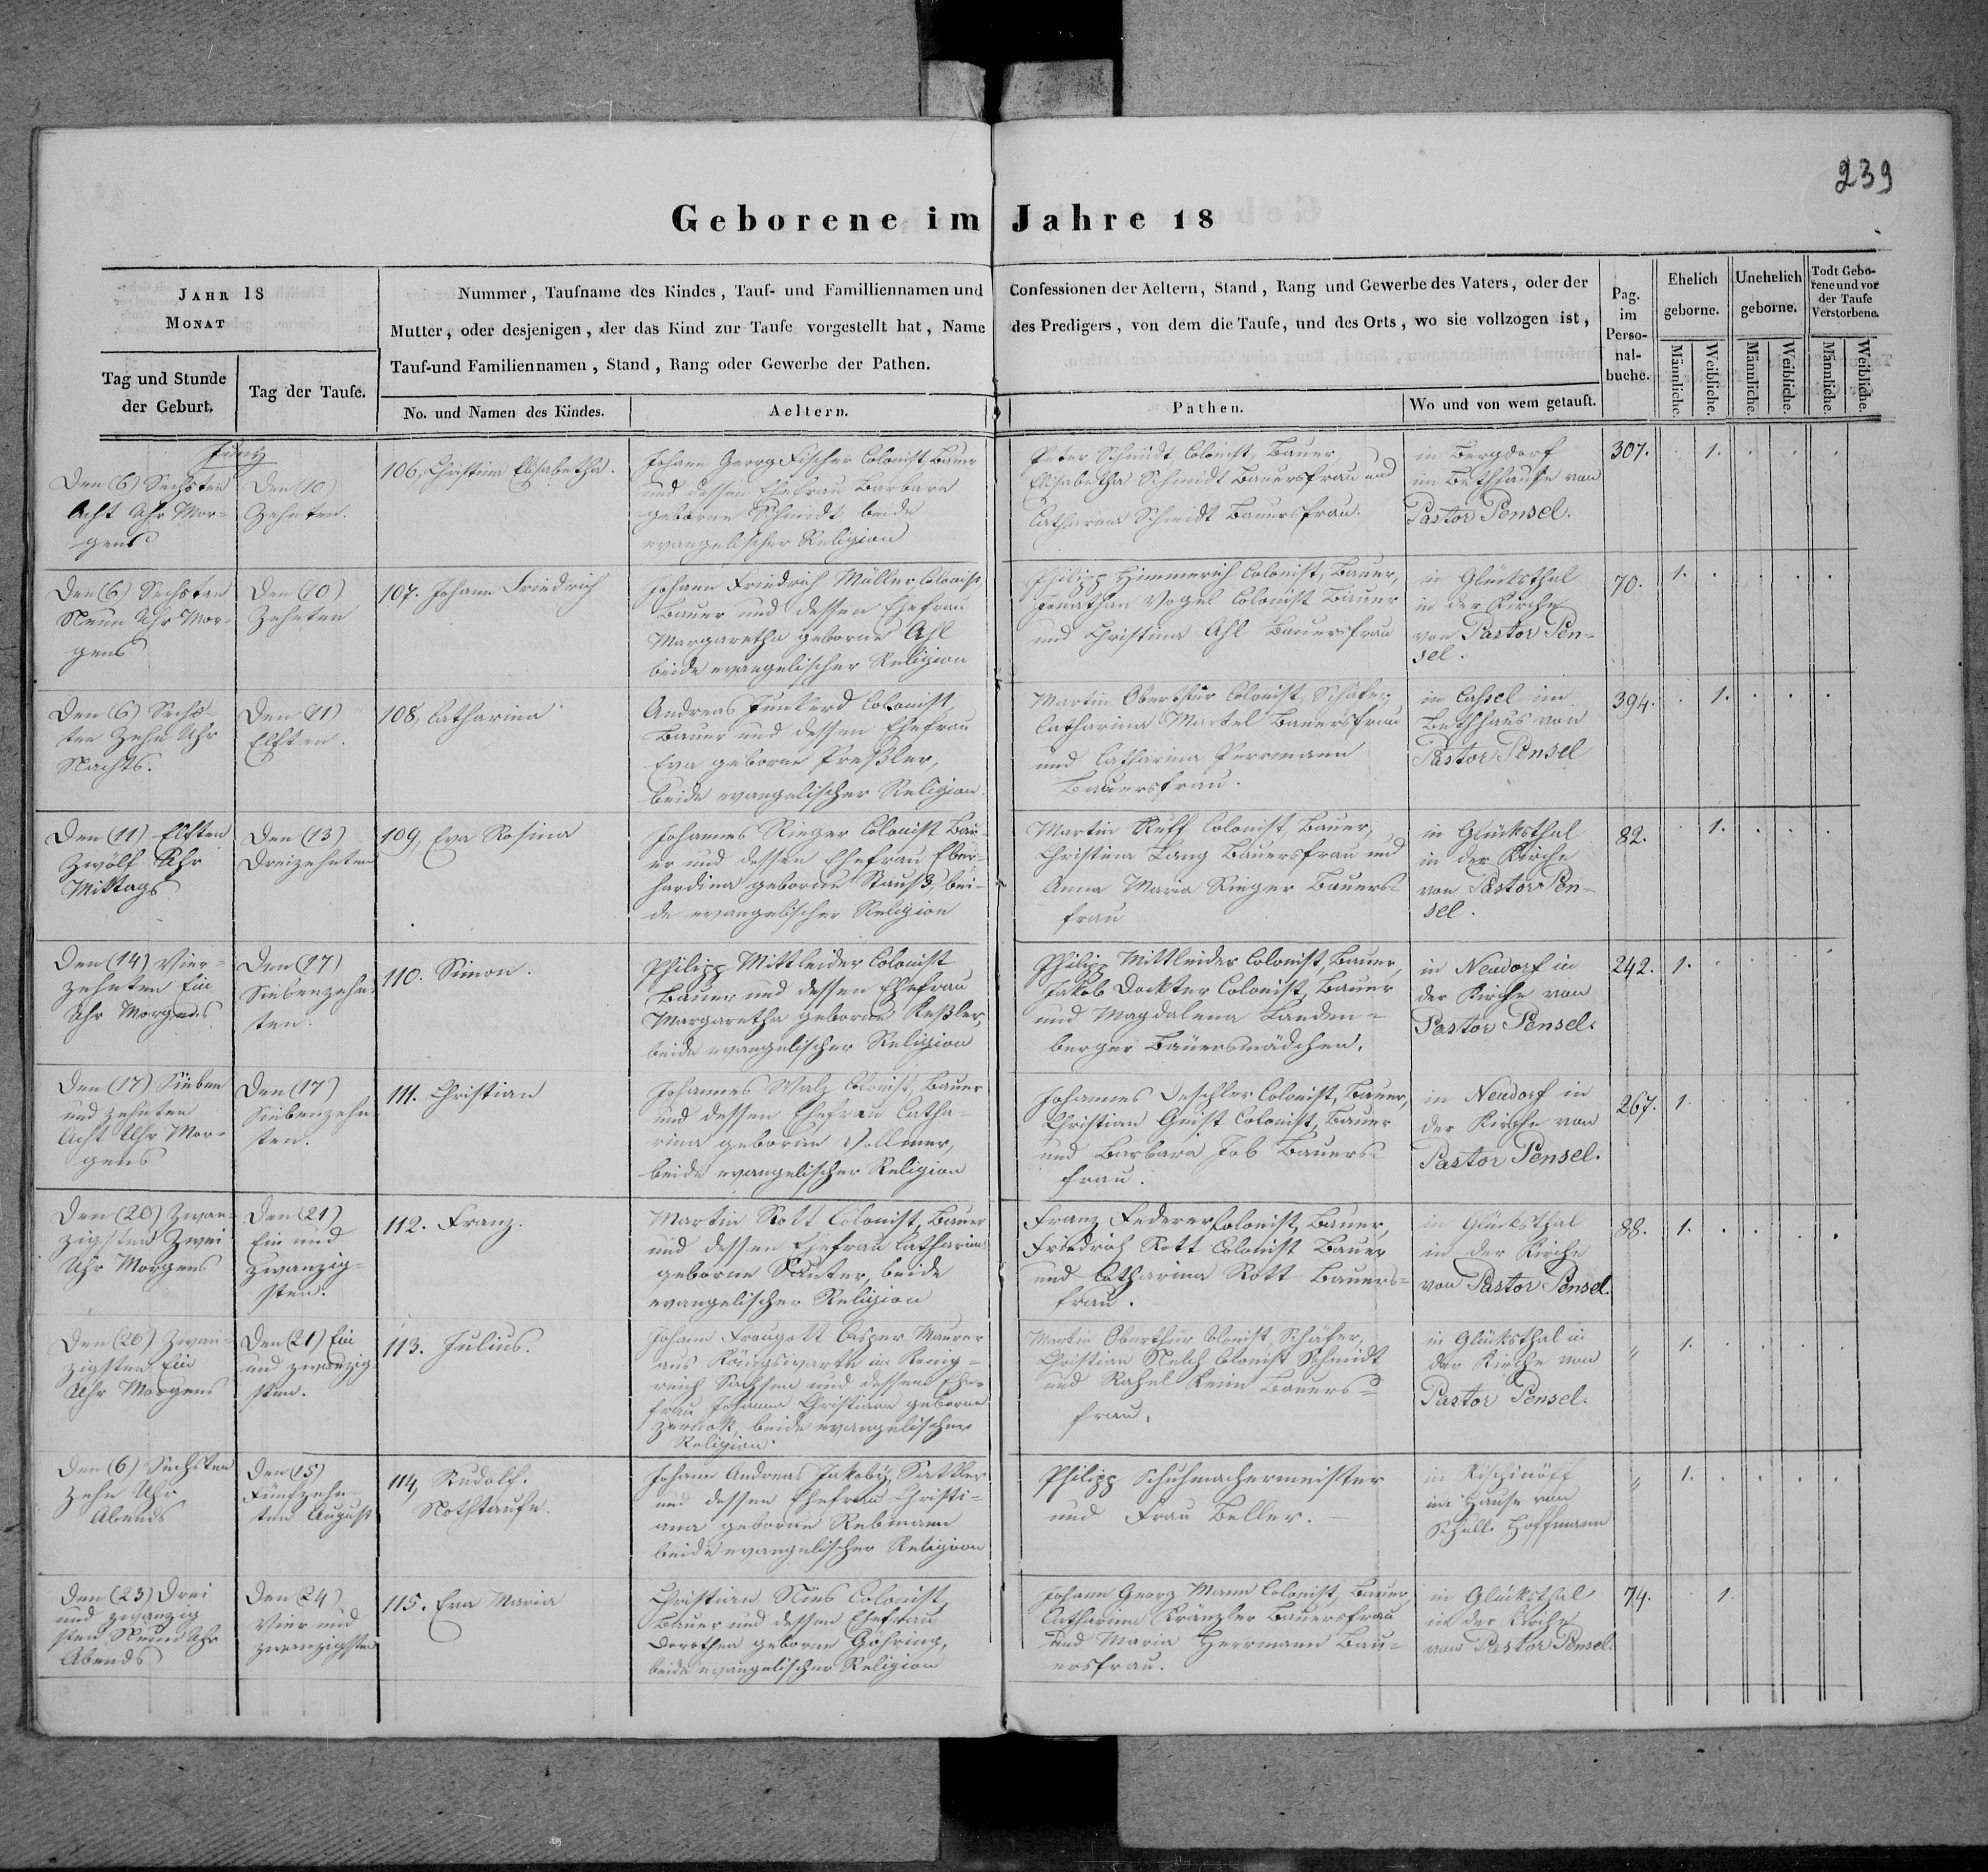 239
Geborene im Jahre 18
JAHR 18
MONAT
Tag und Stunde
der Geburt.
Tag der Taufe.
Nummer, Taufname des Kindes, Tauf- und Familliennamen und
Mutter, oder desjenigen, der das Kind zur Taufe vorgestellt hat, Name
Tauf-und Familiennamen, Stand, Rang oder Gewerbe der Pathen.
No. und Namen des Kindes.
Aeltern.
Confessionen der Aeltern, Stand, Rang und Gewerbe des Vaters, oder der
des Predigers, von dem die Taufe, und des Orts, wo sie vollzogen ist,
Pathen.
Wo und von wem getauft.
Pag.
im
Perso-
nal-
buche.
Ehelich
geborne.
Unehelich
geborne.
Todt Gebo-
rene und vor
der Taufe
Verstorbene.
Männliche.
Weibliche.
Männliche.
Weibliche.
Männliche.
Weibliche.
Juny
Den (6) Sechsten
Acht Uhr Mor-
gens
Den (10)
Zehnten.
106, Christina Elisabetha.
Johann Georg Fischer Colonist, Bauer
und dessen Ehefrau Barbara
geborne Schmidt, beide
evangelischer Religion
Peter Schmidt Colonist, Bauer,
Elisabetha Schmidt Bauersfrau und
Catharina Schmidt Bauersfrau.
in Bergdorf
im Bethhause von
Pastor Pensel.
307. 1.
Den (6) Sechsten
Neun Uhr Mor-
gens
Den (10)
Zehnten
107. Johann Friedrich
Johann Friedrich Müller Colonist,
Bauer und dessen Ehefrau
Margaretha geborne Ahl
beide evangelischer Religion
Philipp Himmerich Colonist, Bauer,
Jonathan Vogel Colonist Bauer
und Christina Ahl Bauersfrau
in Glücksthal
in der Kirche
von Pastor Pen-
sel.
70. 1.
Den (6) Sechs-
ten Zehn Uhr
Nachts.
Den (11)
Elften.
108, Catharina
Andreas Junkerd Colonist,
Bauer und dessen Ehefrau
Eva geborne Preßler,
beide evangelischer Religion.
Martin Oberthür Colonist, Schäfer,
Catharina Martel Bauersfrau
und Catharina
Bauersfrau.
in Cassel im
Bethhaus von
Pastor Pensel
394. 1.
Den (11) Elften
Zwölf Uhr
Mittags
Den (13)
Dreizehnten
109, Eva Rosina
Johannes Rieger Colonist Bau-
er und dessen Ehefrau Eber-
hardina geborne Stauß, bei-
de evangelischer Religion
Martin Ruff Colonist, Bauer,
Christina Lang Bauersfrau und
Anna Maria Rieger Bauers-
frau
in Glücksthal
in der Kirche
von Pastor Pen-
sel.
82. 1.
Den (14) Vier-
zehnten Ein
Uhr Morgens
Den (17)
Siebenzehn-
ten.
110. Simon.
Philipp Mittleider Colonist
Bauer und dessen Ehefrau
Margaretha geborne Keßler,
beide evangelischer Religion
Philipp Mittleider Colonist, Bauer,
Jakob Dockter Colonist, Bauer
und Magdalena Landen-
berger Bauersmädchen.
in Neudorf in
der Kirche von
Pastor Pensel.
242. 1.
Den (17) Sieben
und zehnten
Acht Uhr Mor-
gens
Den (17)
Siebenzehn-
ten.
111. Christian
Johannes Walz Colonist, Bauer
und dessen Ehefrau Catha-
rina geborne Vollmer,
beide evangelischer Religion
Johannes Deschler Colonist, Bauer,
Christian Geist Colonist, Bauer
und Barbara Job Bauers-
frau.
in Neudorf in
der Kirche von
Pastor Pensel.
267. 1.
Den (20) Zwan-
zigsten Zwei
Uhr Morgens
Den (21)
Ein und
zwanzig-
sten.
112. Franz.
Martin Rott Colonist, Bauer
und dessen Ehefrau Catharina
geborne Sauter, beide
evangelischer Religion
Franz Federer Colonist, Bauer,
Friedrich Rott Colonist Bauer
und Catharina Rott Bauers-
frau.
in Glücksthal
in der Kirche
von Pastor Pensel.
88. 1.
Den (20) Zwan-
zigsten Ein
Uhr Morgens
Den (21) Ein
und zwanzig
sten.
113. Julius.
Johann Traugott Casper Maurer
aus Königswarte im König-
reich Sachsen und dessen Ehe-
frau Johanna Christiana geborne
beide evangelischer
Religion.
Martin Oberthür Colonist Schäfer,
Christian Colonist Schmidt
und Rahel Keim Bauers-
frau.
in Glücksthal in
der Kirche von
Pastor Pensel.
" 1.
Den (6) Sechsten
Zehn Uhr
Abends
Den (15)
Fünfzehn-
ten August
114, Rudolf.
Nothtaufe.
Johann Andreas Jakoby, Sattler
und dessen Ehefrau Christi-
ana geborne Rebmann
beide evangelischer Religion
Philipp Schuhmachermeister
und Frau Beller.
in Kischinöff
im Hause von
Schull. Hoffmann
" 1.
Den (23) Drei
und zwanzig
sten Neun Uhr
Abends
Den (24)
Vier und
zwanzigsten
115. Eva Maria
Christian Nies Colonist,
Bauer und dessen Ehefrau
Dorothea geborne Göhring,
beide evangelischer Religion
Johann Georg Mann Colonist, Bauer,
Catharina Kränzler Bauersfrau
und Maria Herrmann Bau-
ersfrau.
in Glücksthal
in der Kirche
von Pastor Pensel.
74. 1.